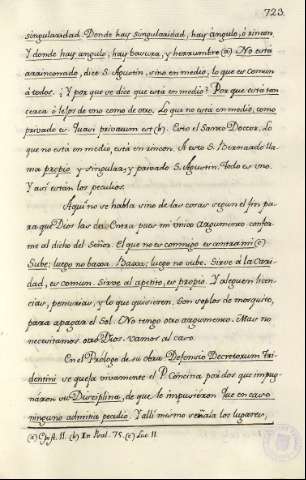 723
singularidad. Donde hay singularidad, hay angulo, ò rincon,
Y donde hay angulo, hay basura, y herrumbre (a) No està
arrinconado, dice S. Agustin, sino en medio, lo que es comun
à todos. ¿Y por que se dice que està en medio? Por que està tan
cerca ò lejos de uno como de otro. Lo que no està en medio, como
privado es. Quasi privatum est (b). Esto el Santo Doctor. Lo
que no està en medio, està en rincon. A esto S. Bernardo lla
ma propio y singular, y privado S. Agustin. Todo es uno.
Y asi estàn los peculios.
Aqui no se habla sino de las cosas segun el fin pa
ra que Dios las dà. Entra pues mi unico argumento confor
me al dicho del Señor. El que no es conmigo es contra mi (c)
Sube; luego no baxa. Baxa; luego no sube. Sirve à la Cari
dad, es comun. Sirve al apetito, es propio. Y aleguen licen
cias, penurias, y lo que quisieren. Son soplos de mosquito,
para apagar el Sol. No tengo otro argumento. Mas no
necesitamos otro Dios. Vamos al caso.
En el Prologo de su obra Defensio Decretorum Tri
dentini se quexa vivamente el P. Concina por dos que impug
naron su Disciplina, de que le impusieron Que en caso
ninguno admitia peculio. Y alli mismo señala los lugares,
(b) In Psal. 75. (c) Luc. 11.